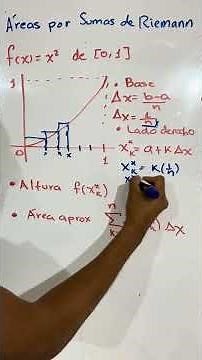 Áreas por Sumas de Riemann
f(x) = x² de [0, 1]
1
• Base
Δx = b-a/n
Δx = 1/n
• Lado derecho
x*k = a + k Δx
0
1
x*k = k(1/n)
• Altura f(x*k)
• Área aprox
n
Σ
) Δx